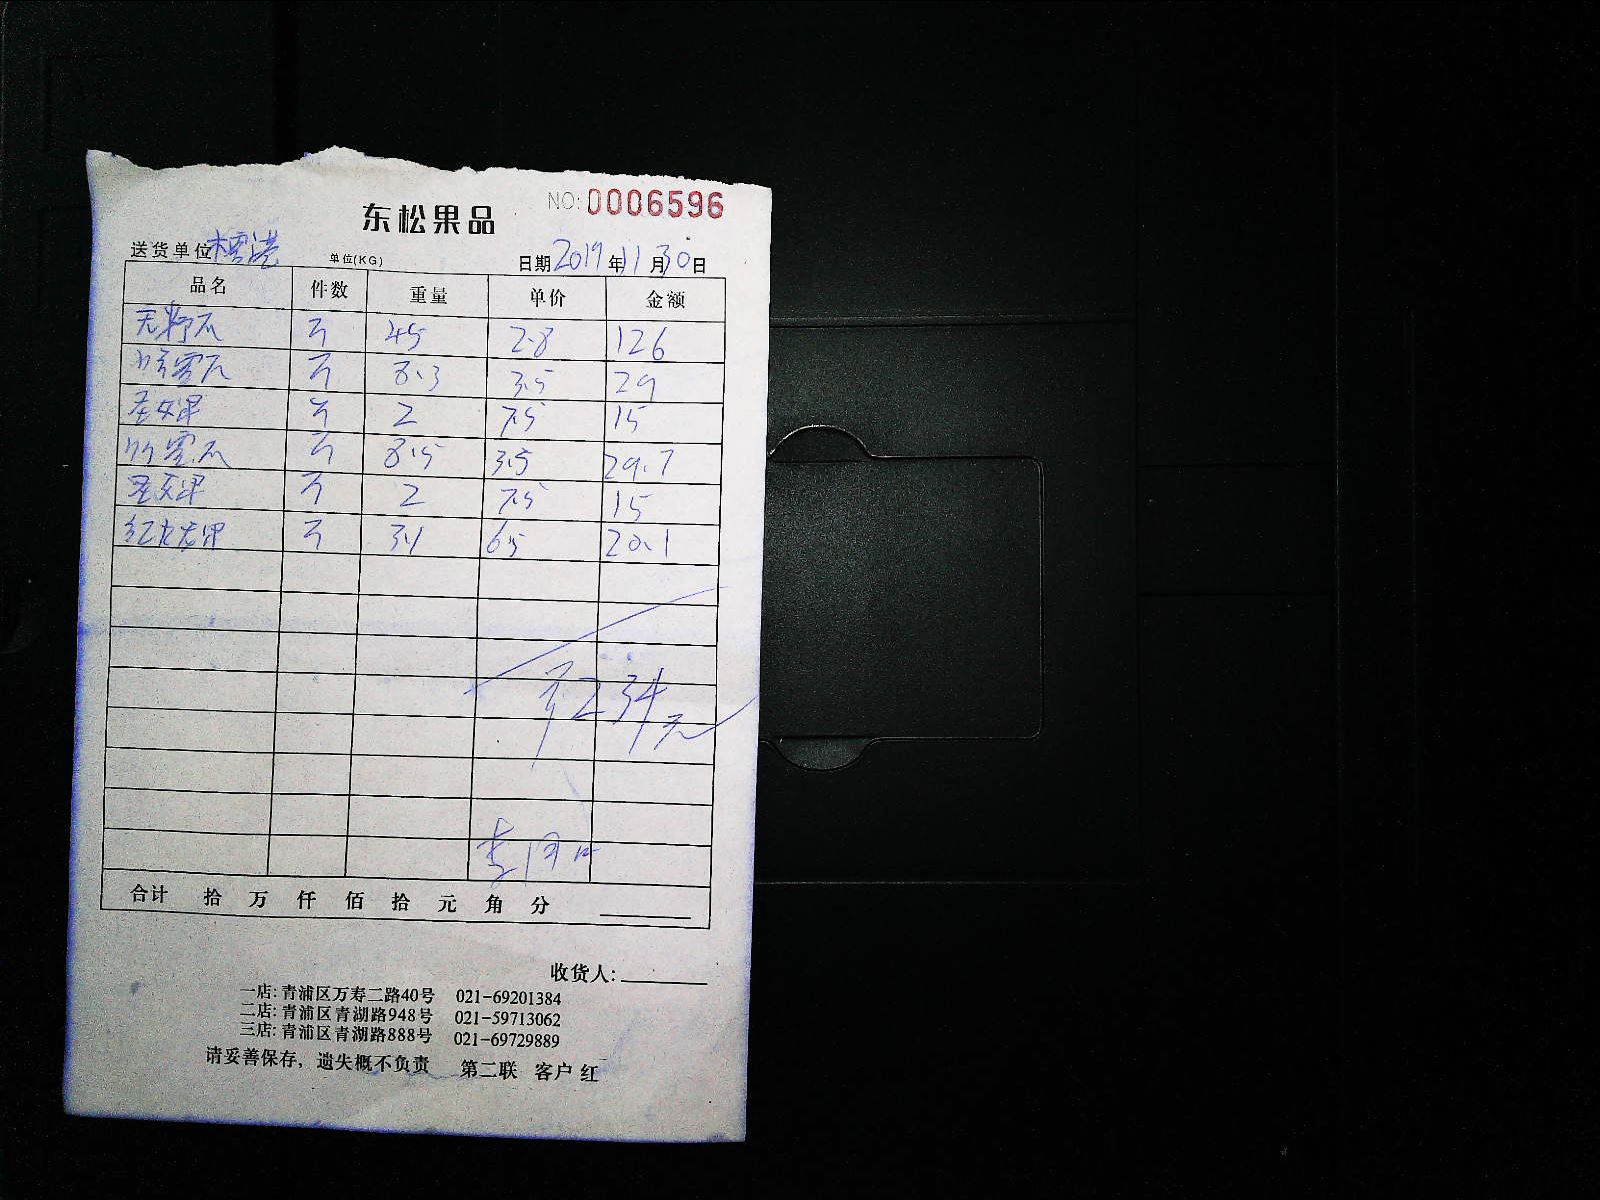 NO:0006596
东松果品
送货单位 单位(KG) 日期2019年11月30日
品名 件数 重量 单价 金额
45 2.8 126
8.3 3.5 29
圣女果 2 7.5 15
8.5 3.5 29.7
圣女果 2 7.5 15
红火龙果 3.1 6.5 20.1
234元
合计 拾 万 仟 佰 拾 元 角 分
收货人:
一店: 青浦区万寿二路40号 021-69201384
二店: 青浦区青湖路948号 021-59713062
三店: 青浦区青湖路888号 021-69729889
请妥善保存，遗失概不负责 第二联 客户 红